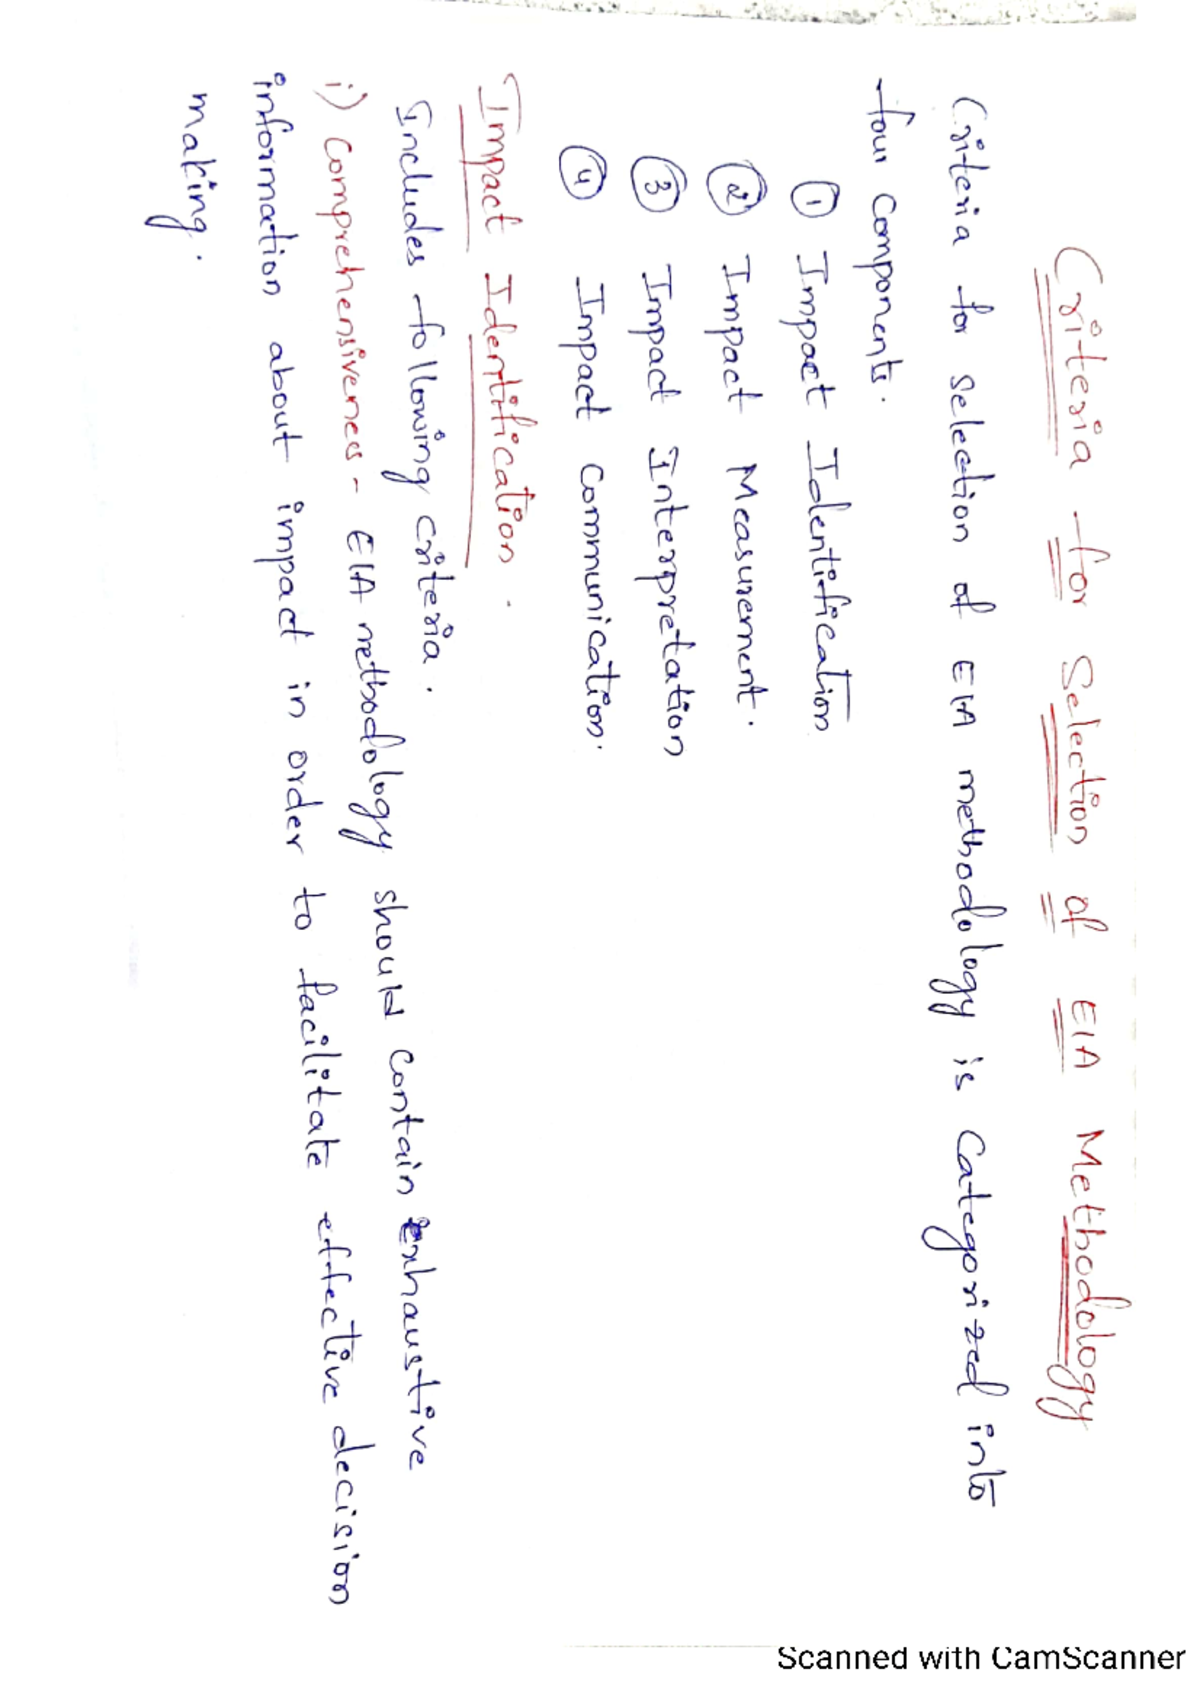 Criteria for Selection of EIA Methodology
Criteria for selection of EIA methodology is Categorized into
four Components.
① Impact Identification
② Impact Measurement.
③ Impact Interpretation
④ Impact Communication.
Impact Identification.
Includes following criteria.
i) Comprehensiveness - EIA methodology should contain exhaustive
information about impact in order to facilitate effective decision
making.
Scanned with CamScanner